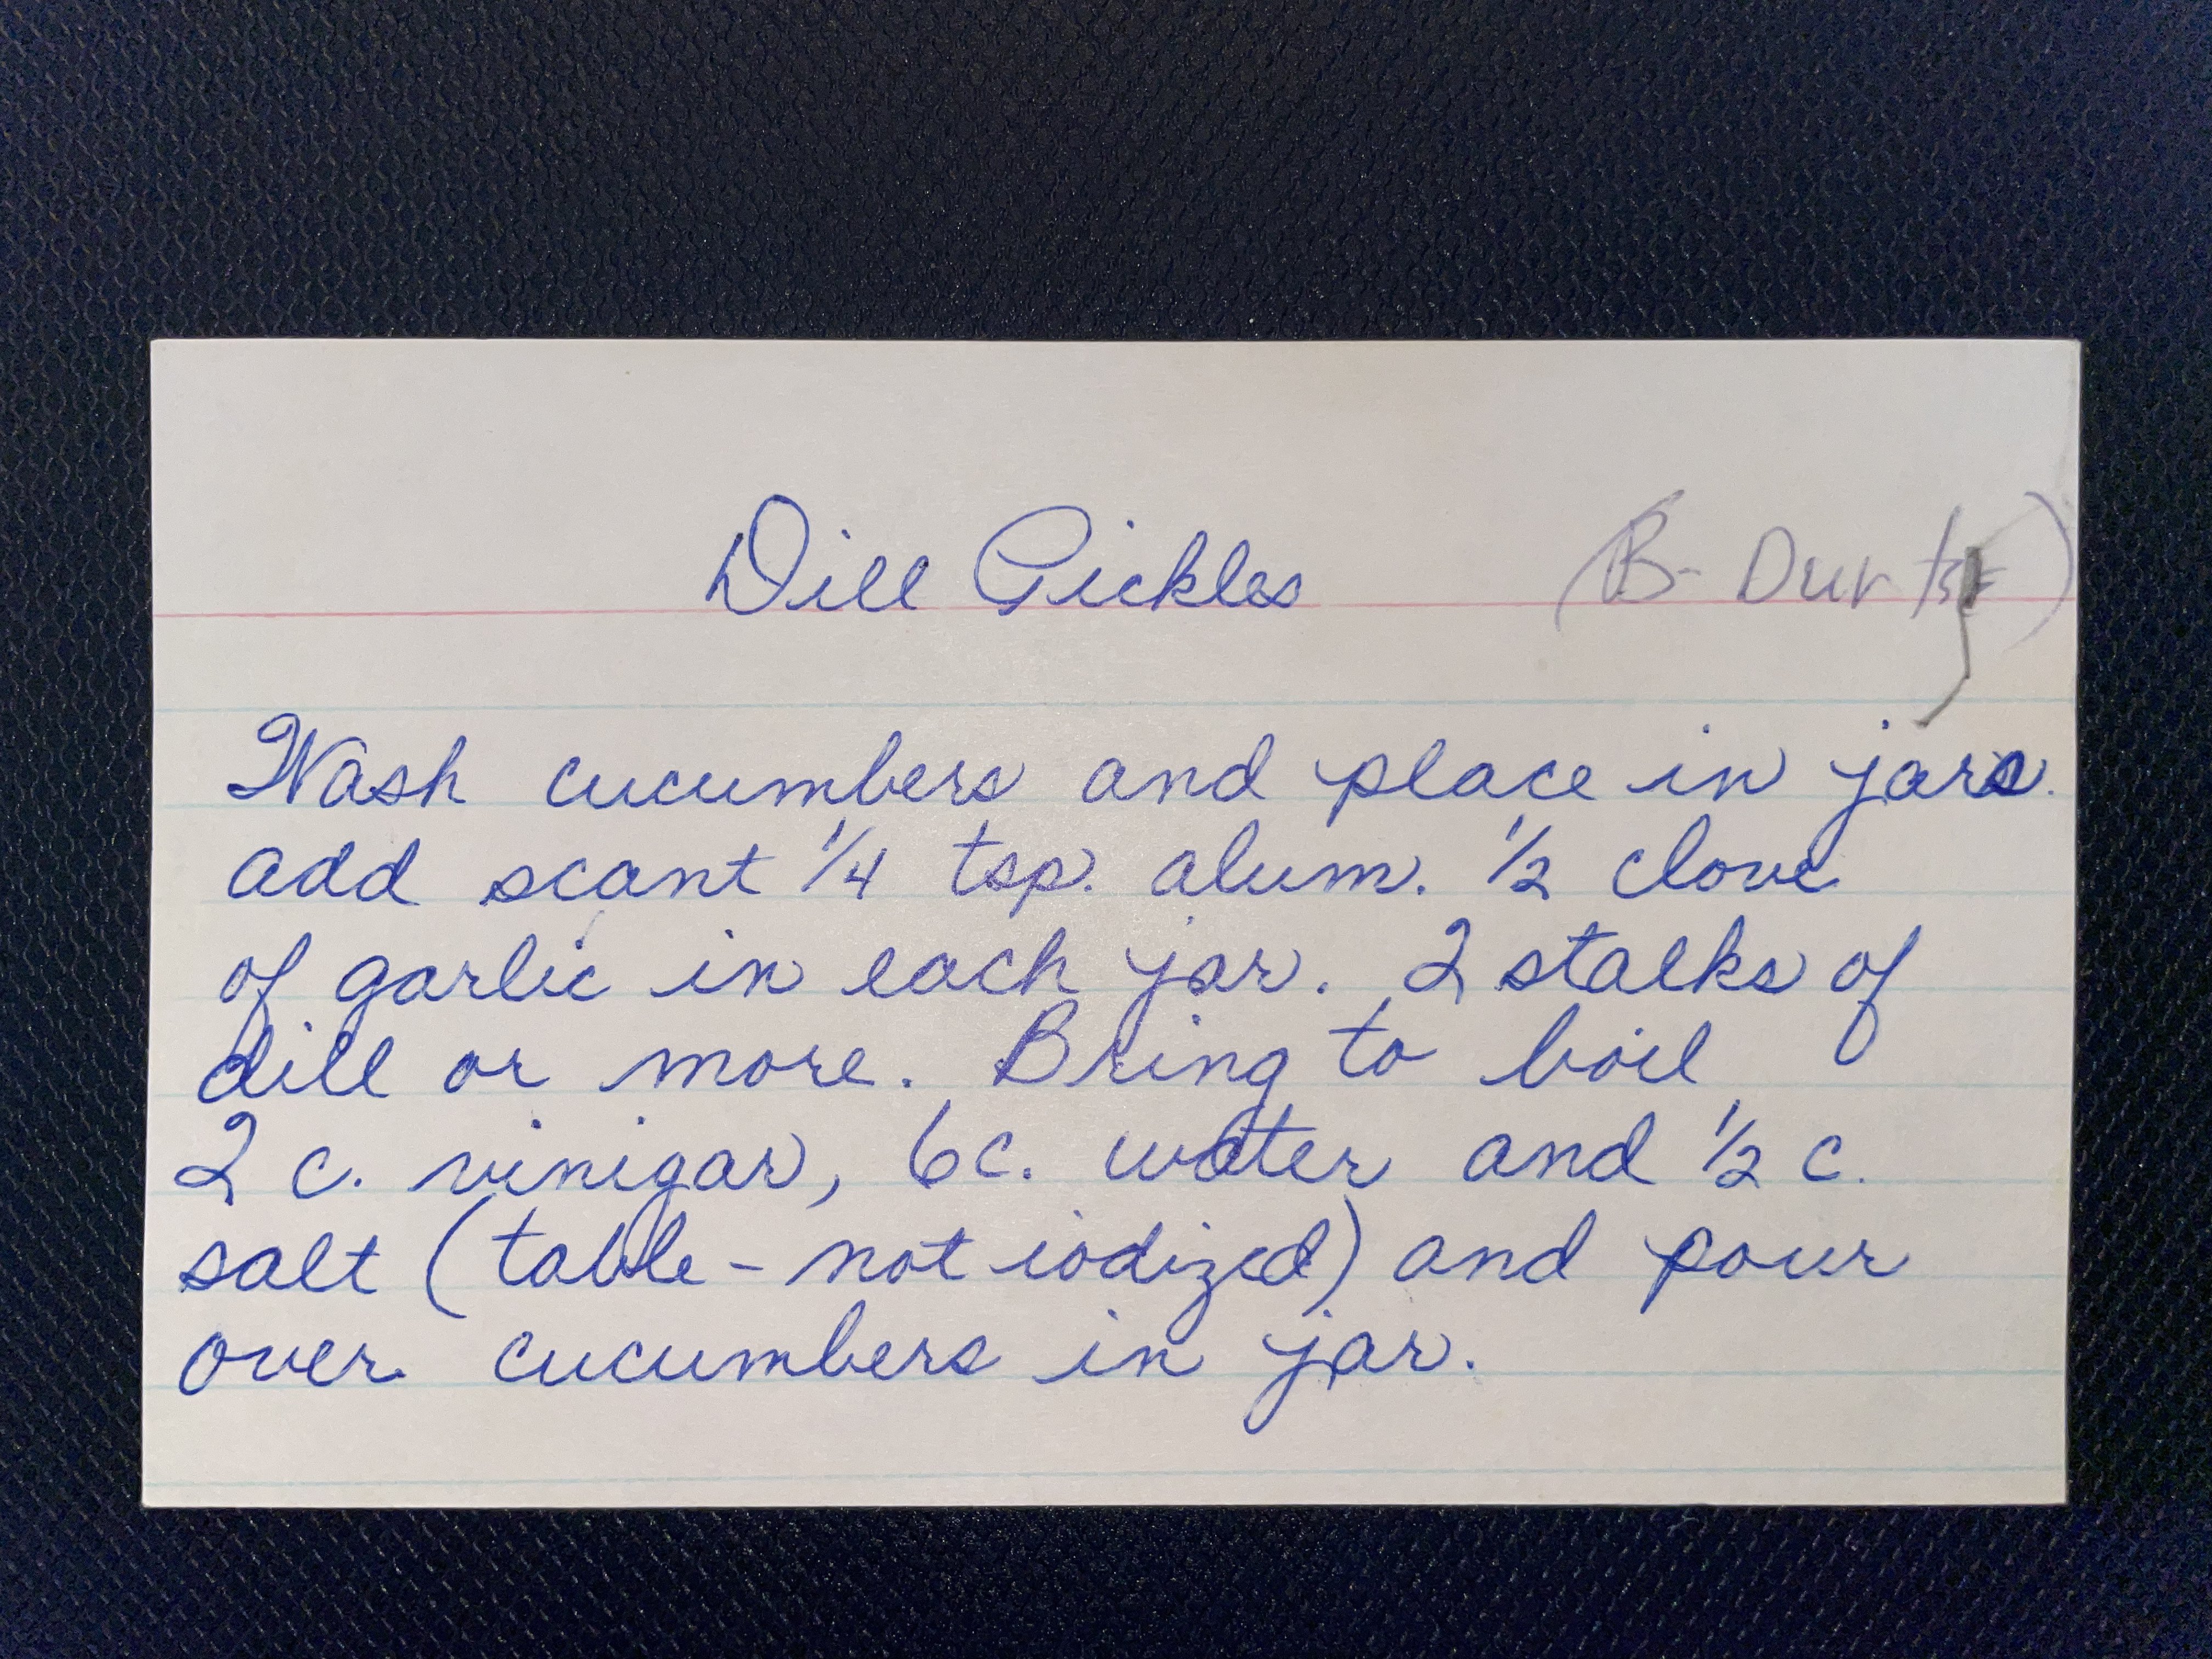 Dill Pickles (B-
Wash cucumbers and place in jars.
add scant 1/4 tsp. alum. 1/2 clove
of garlic in each jar. 2 stalks of
dill or more. Bring to boil
2 c. vinigar, 6c. water and 1/2 c.
salt (table - not iodized) and pour
over cucumbers in jar.